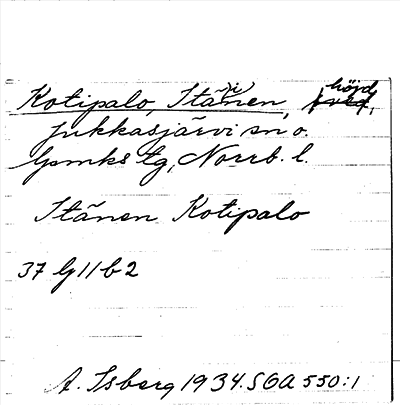 Kotipalo, Itä(i)nen, höjd,
Jukkasjärvi sn o.
Gsmks tg, Norrb. l.
Itänen Kotipalo
37 G 11 b 2
A. Isberg 1934. SOA 550:1